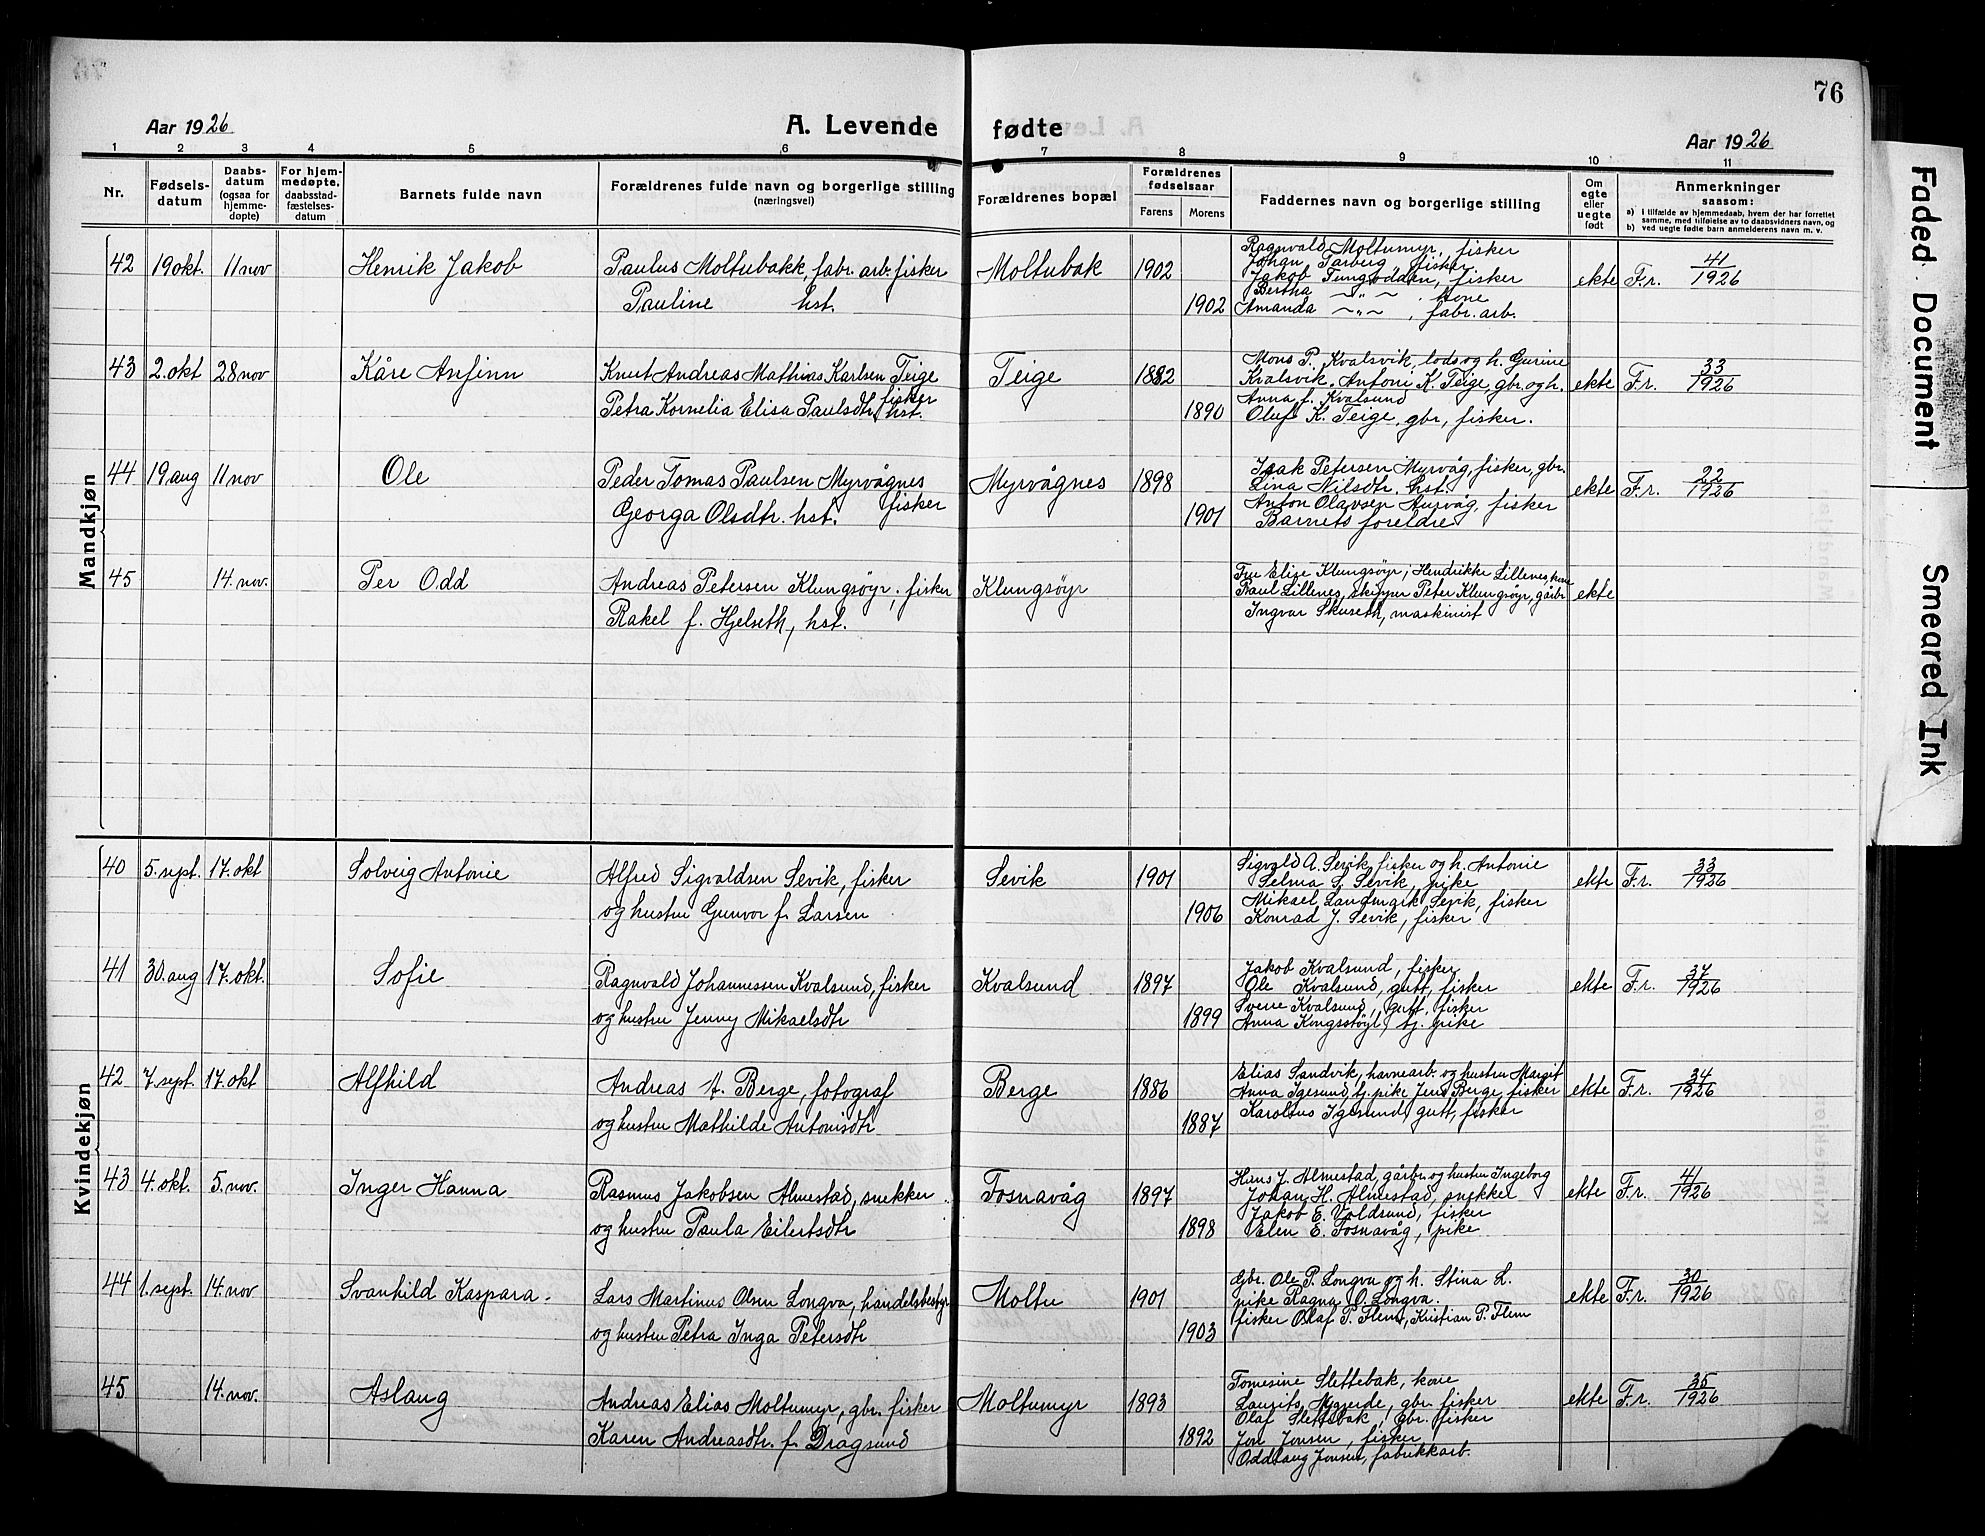 76
Aar 1926
A. Levende fødte
Aar 1926
1 2 3 4 5 6 7 8 9 10 11
Nr.
Fødsels-
datum
Daabs-
datum
(ogsaa for
hjemme-
døpte)
For hjem-
medøpte,
daabsstad-
fæstelses-
datum
Barnets fulde navn
Forældrenes fulde navn og borgerlige stilling
(næringsvei)
Forældrenes bopæl
Forældrenes
fødselsaar
Farens Morens
Faddernes navn og borgerlige stilling
Om
egte
eller
uegte
født
Anmerkninger
saasom:
a) i tilfælde av hjemmedaab, hvem der har forrettet
samme, med tilføielse av to daabsvidners navn, og
b) ved uegte fødte barn anmelderens navn m. v.
Mandkjøn
42 19 okt. 11 nov Henrik Jakob
Paulus Moltubakk, fabr. arb. fisker
Pauline hst.
Moltubak 1902
1902
Ragnvald Moltumyr, fisker
Johan Tarberg, fisker
Jakob Tungodden, fisker
Bertha ~"~, kone
Amanda ~"~, fabr. arb.
ekte F.r. 41/1926
43 2. okt 28 nov Kåre Anfinn
Knut Andreas Mathias Karlsen Teige
fisker
Petra Kornelia Elisa Paulsdtr, hst.
Teige 1882
1890
Mons P. Kvalsvik, lods og h. Gurine
Kvalsvik, Antoni K. Teige, gbr. og h.
Anna f. Kvalsund
Oluf K. Teige, gbr, fisker.
ekte F.r. 33/1926
44 19 aug 11 nov Ole
Peder Tomas Paulsen Myrvågnes
fisker
Georga Olsdtr. hst.
Myrvågnes 1898
1901
Isak Petersen Myrvåg, fisker, gbr.
Lina Nilsdtr. hst.
Anton Olavsen Aurvåg, fisker
Barnets foreldre
ekte F.r. 22/1926
45 14. nov. Per Odd
Andreas Petersen Klungsöyr, fisker
Rakel f. Hjelseth, hst.
Klungsöyr
Fru Elise Klungsöyr; Hendrikke Lillenes, kone
Paul Lillenes, skipper Peter Klungsöyr, gårbr
Ingvar Skuseth, maskinist
ekte
Kvindekjøn
40 5. sept. 17. okt Solveig Antonie
Alfred Sigvaldsen Sevik, fisker
og hustru Gunvor f. Larsen
Sevik 1901
1906
Sigvald A. Sevik, fisker og h. Antonie
Selma S. Sevik, pike
Mikael Landmark Sevik, fisker
Konrad J. Sevik, fisker
ekte F.r. 33/1926
41 30. aug 17. okt. Sofie
Ragnvald Johannessen Kvalsund, fisker
og hustru Jenny Mikaelsdtr
Kvalsund 1897
1899
Jakob Kvalsund, fisker
Ole Kvalsund, gutt, fisker
Sverre Kvalsund, gutt, fisker
Anna Kongsstöyl, tj. pike
ekte F.r. 37/1926
42 7. sept. 17. okt Alfhild
Andreas A. Berge, fotograf
og hustru Mathilde Antonisdtr
Berge 1886
1887
Elias Sandvik, havnearb. og hustru Margit
Anna Igesund, tj. pike Jens Berge, fisker
Karolus Igesund, gutt, fisker
ekte F.r. 34/1926
43 4. okt. 5. nov. Inger Hanna
Rasmus Jakobsen Almestad, snekker
og hustru Paula Eilertsdtr
Fosnavåg 1897
1898
Hans J. Almestad, gårbr. og hustru Ingeborg
Johan H. Almestad, snekker
Jakob E. Voldsund, fisker
Elen E. Fosnavåg, pike
ekte F.r. 41/1926
44 1. sept. 14. nov Svanhild Kaspara
Lars Martinus Olsen Longva, handelsbestyr
og hustru Petra Inga Petersdtr
Moltu 1901
1903
Gbr. Ole P. Longva og h. Stina L.
pike Ragna O. Longva.
fisker Olaf P. Flem, Kristian P. Flem
ekte F.r. 30/1926
45 14. nov. Aslaug
Andreas Elias Moltumyr, gbr. fisker
Karen Andreasdtr. f. Dragsund
Moltumyr 1893
1892
Tomesine Slettebak, kone
Laurits Myrerde, gbr. fisker
Olaf Slettebak, gbr. fisker
Jon Jonsen, fisker
Oddlaug Jonsen, fabrikkarb.
ekte F.r. 35/1926
Faded Document
Smeared Ink